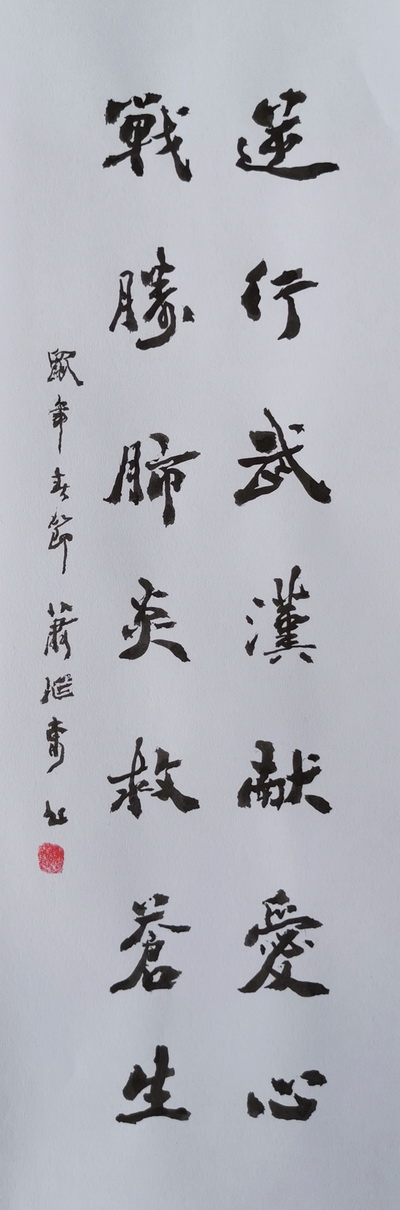 逆行武漢献愛心
戰勝肺炎救蒼生
鼠年春節蕭